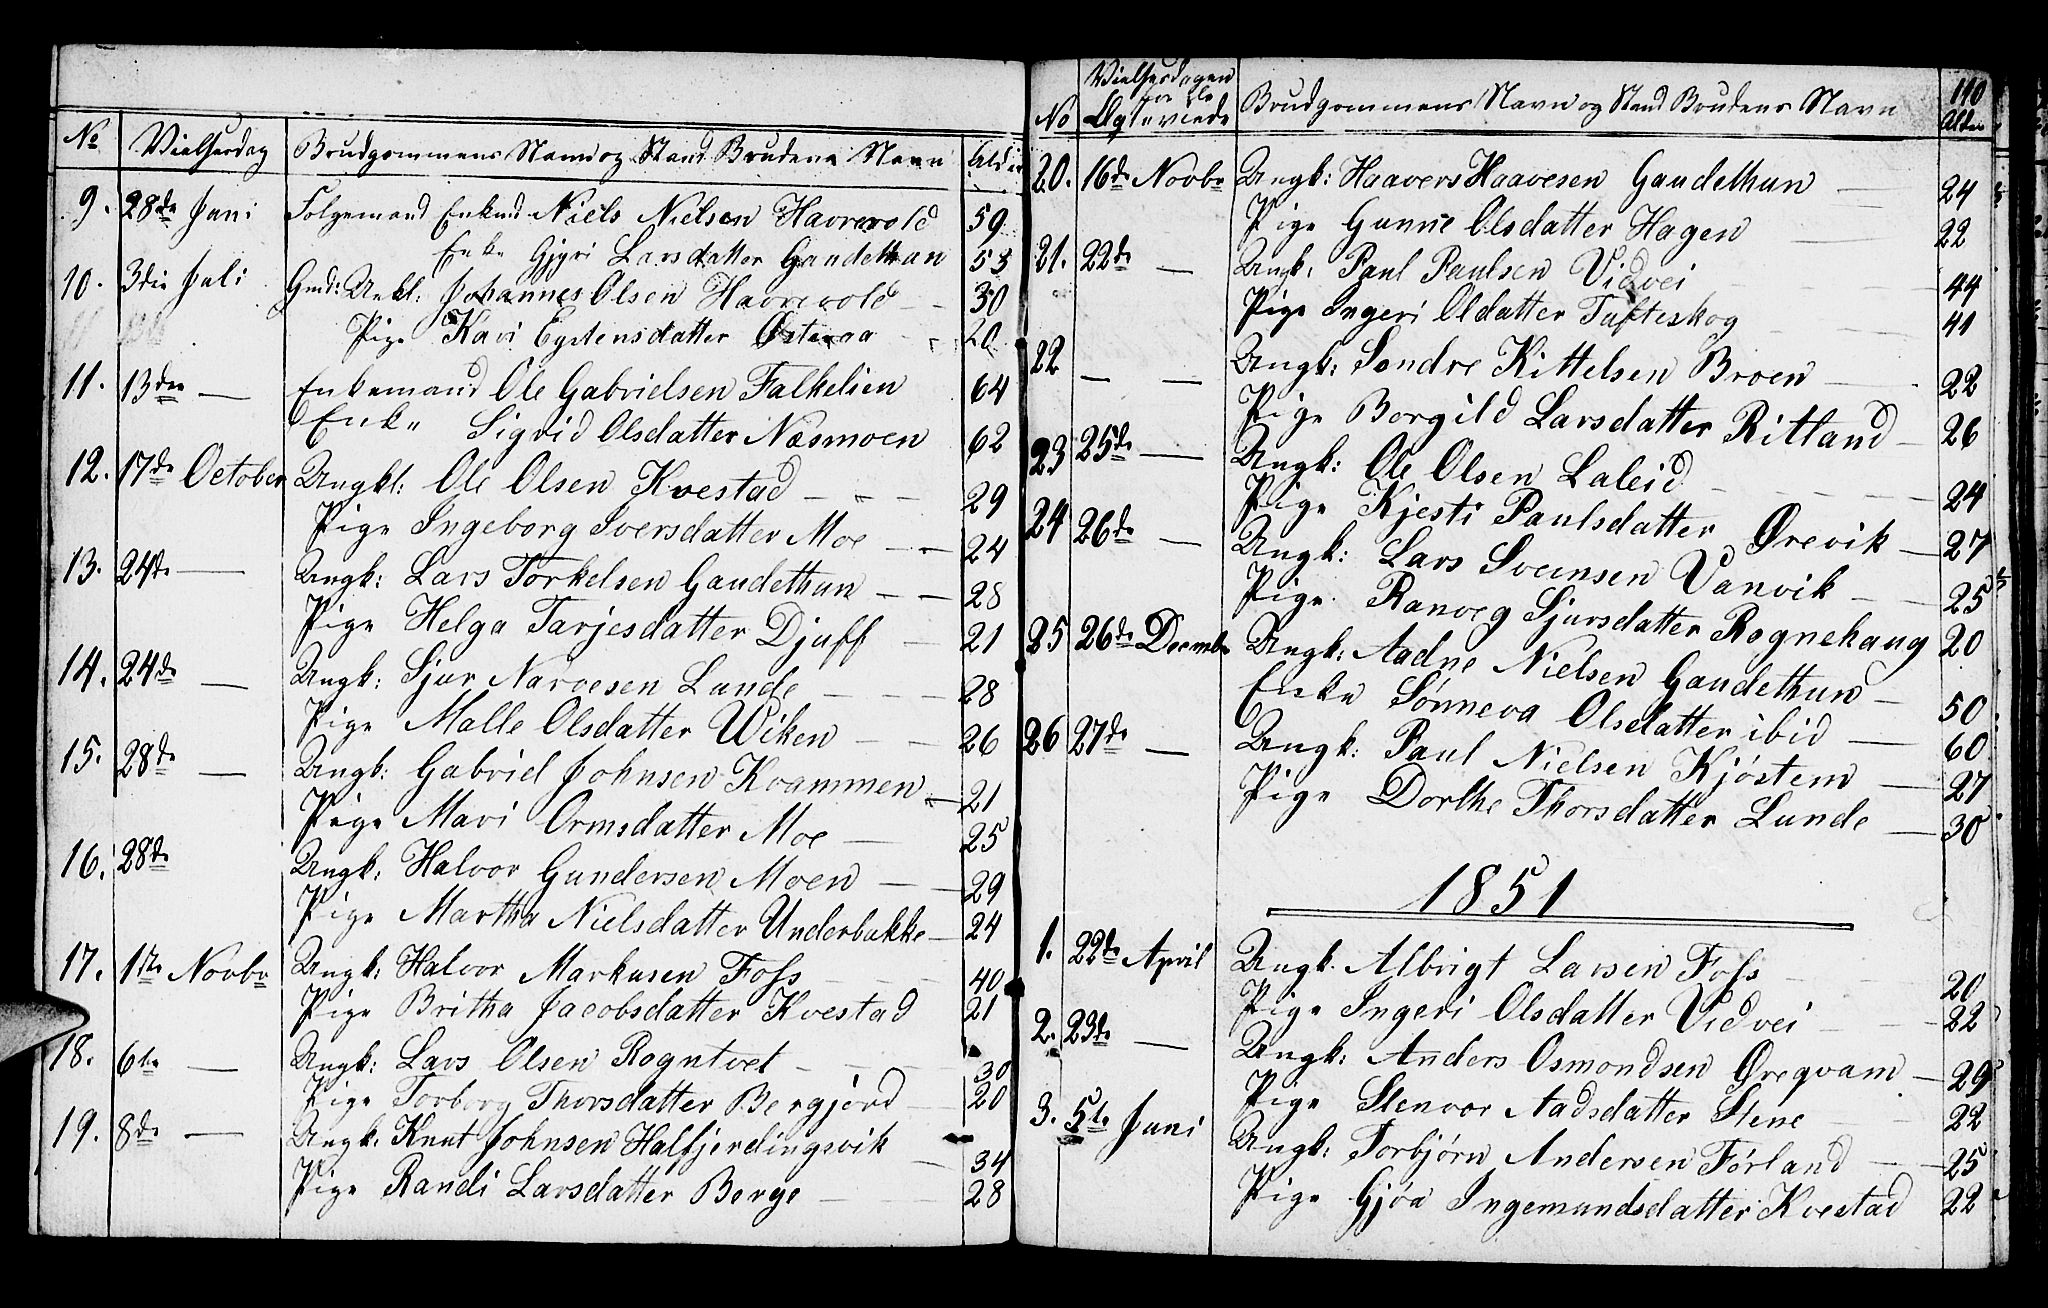 No Vielsesdag Brudgommens Navn og Stand Brudens Navn Alder
9. 28de Juni Folgemand Enkmd Niels Nielsen Havrevold 59
Enke Gjyri Larsdatter Gaudethun 53
10. 3die Juli Gmd: Unkl: Johannes Olsen Havrevold 30
Pige Kari Eystensdatter Østeraa 20
11. 13de — Enkemand Ole Gabrielsen Falkelien 64
Enke Sigrid Olsdatter Næsmoen 62
12. 17de October Ungkl: Ole Olsen Kvestad 29
Pige Ingeborg Iversdatter Moe 24
13. 24de — Ungk: Lars Torkelsen Gaudethun 28
Pige Helga Tarjesdatter Djuff 21
14. 24de — Ungk: Sjur Narvesen Lunde 28
Pige Malle Olsdatter Wiken 26
15. 28de — Ungk: Gabriel Johnsen Kvammen 21
Pige Mari Ormsdatter Moe 25
16. 28de Ungk: Halvor Gundersen Moen 29
Pige Martha Nielsdatter Underbakke 24
17. 1ste Novbr Ungk: Halvor Markusen Foss 40
Pige Britha Jacobsdatter Kvestad 21
18. 6te — Ungk: Lars Olsen Rogntvet 30
Pige Torborg Thorsdatter Bergjord 20
19. 8de — Ungk: Knut Johnsen Halfjerdingsvik 34
Pige Randi Larsdatter Berge 28
110
No Vielsesdagen for de Ægteviede Brudgommens Navn og Stand Brudens Navn Alder
20. 16de Novbr Ungk: Haavers Haavesen Gaudethun 24
Pige Gunne Olsdatter Hagen 22
21. 22de — Ungk: Paul Paulsen Vidvei 44
Pige Ingeri Oldatter Tufteskog 41
22 — — Ungk: Sondre Kittelsen Broen 22
Pige Borgild Larsdatter Ritland 26
23 25de — Ungk: Ole Olsen Laleid 24
Pige Kjesti Paulsdatter Ørevik 27
24 26de — Ungk: Lars Svensen Vanvik 25
Pige Ranveg Sjursdatter Rognehaug 20
25 26de Decembr Ungk: Aadne Nielsen Gaudethun 50
Enke Sønneva Olsdatter ibid 60
26 27de — Ungk: Paul Nielsen Kjøstem 27
Pige Dorthe Thorsdatter Lunde 30
1851
1. 22de April Ungk. Albrigt Larsen Foss 20
Pige Ingeri Olsdatter Vidvei 22
2. 23de — Ungk: Anders Osmondsen Øregvam 29
Pige Stenvor Aadsdatter Stene 22
3. 5te Juni Ungk: Torbjørn Andersen Førland 25
Pige Gjøa Ingemundsdatter Kvestad 22